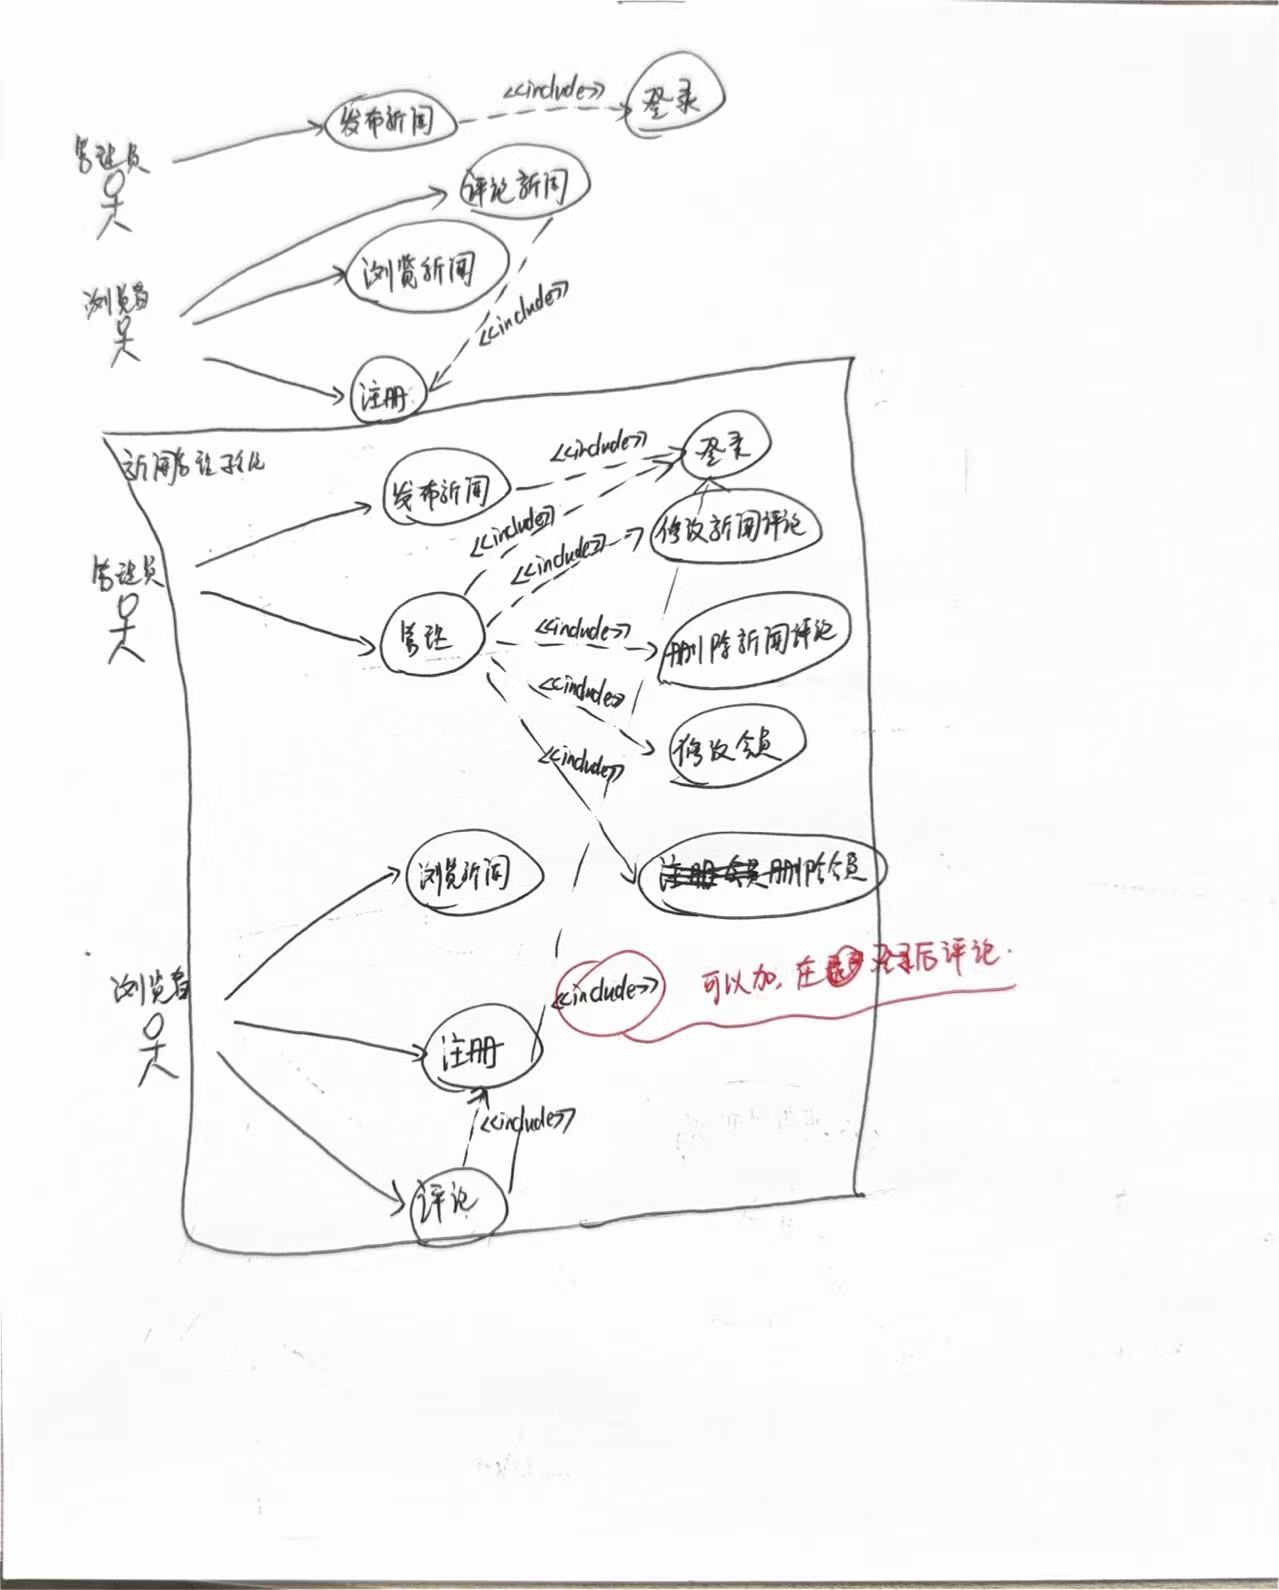 <<include>>
登录
发布新闻
管理员
评论新闻
浏览新闻
浏览者
<<include>>
注册
新闻管理系统
<<include>>
登录
发布新闻
<<include>>
修改新闻评论
<<include>>
管理员
管理
<<include>>
删除新闻评论
<<include>>
修改会员
<<include>>
浏览新闻
删除会员
<<include>>
可以加,在登录后评论.
浏览者
注册
<<include>>
评论